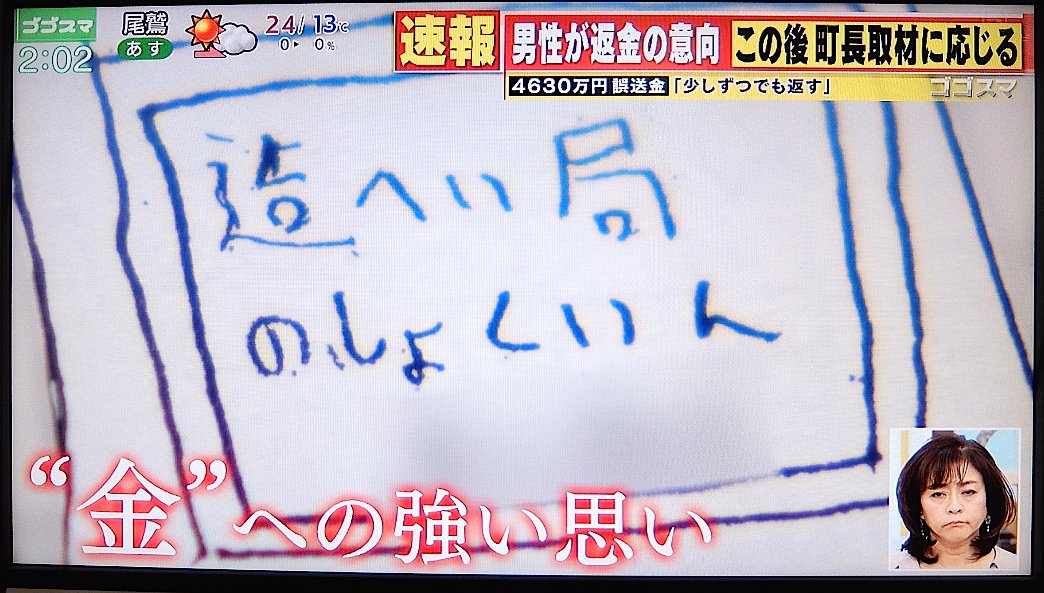 ゴゴスマ
2:02
尾鷲
あす
24/13℃
0 ▶ 0%
速報
男性が返金の意向
この後 町長取材に応じる
4630万円 誤送金 「少しずつでも返す」
ゴゴスマ
造へい局
のしょくいん
“金”への強い思い